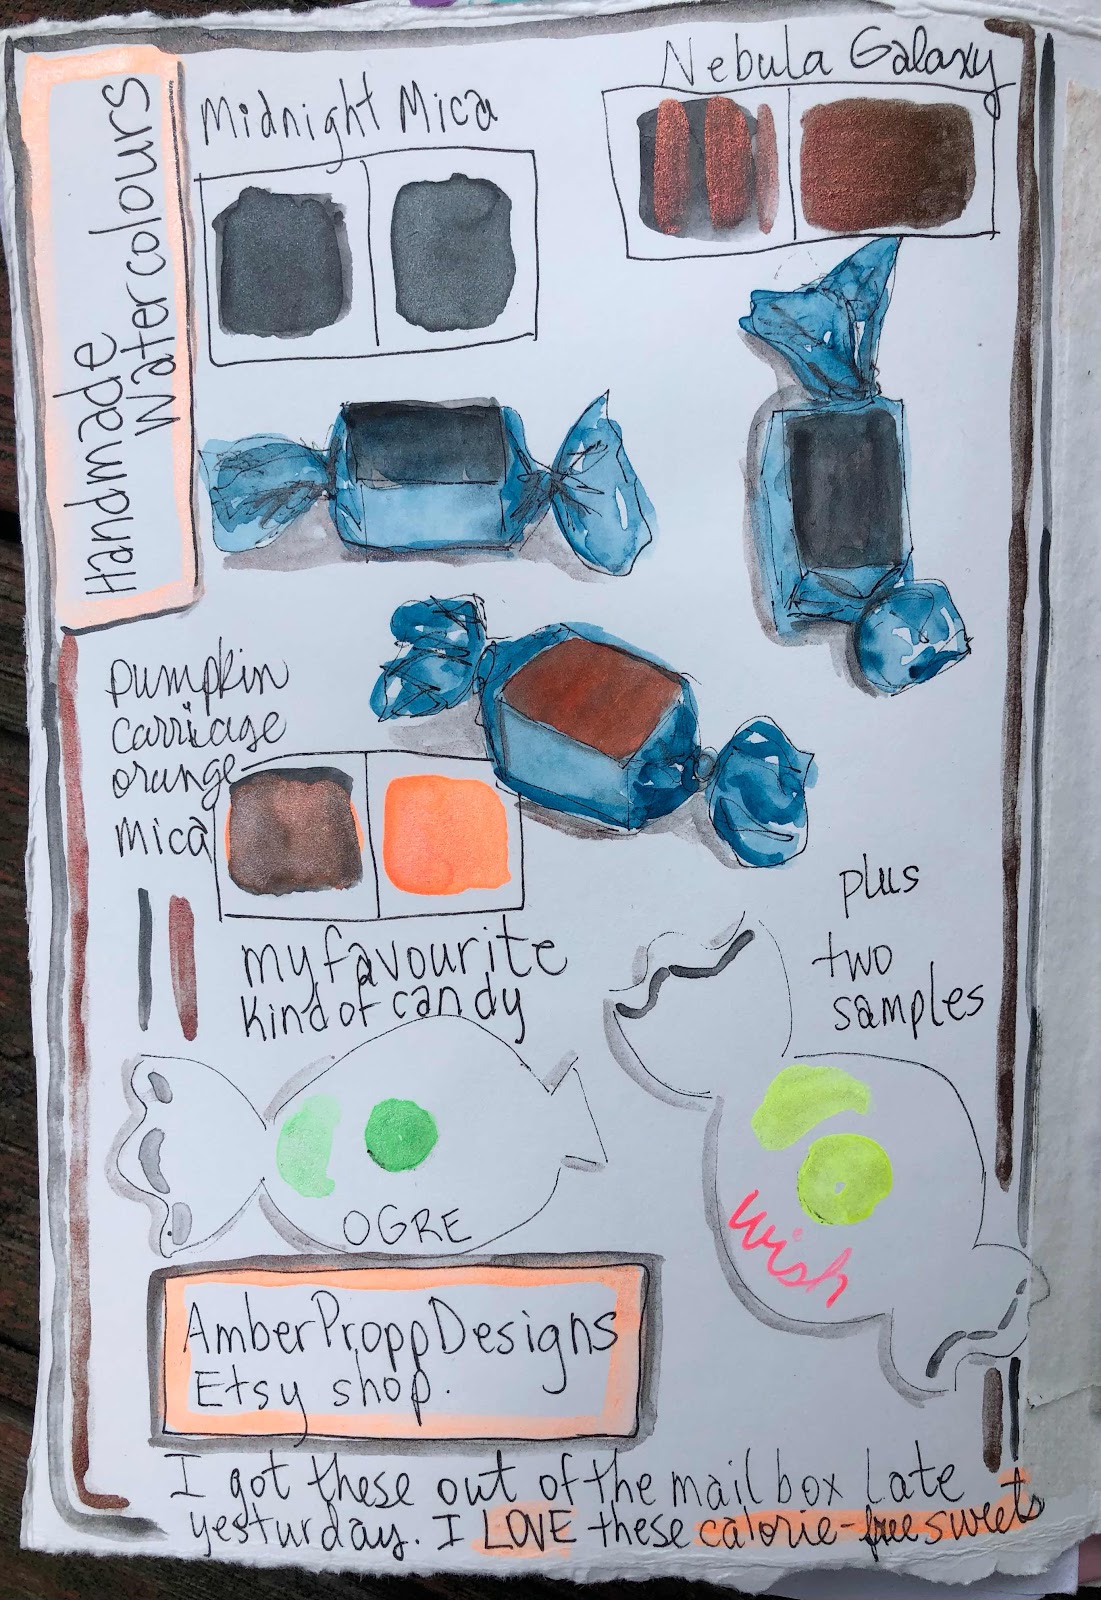 Handmade
Watercolours
Midnight Mica
Nebula Galaxy
pumpkin
carriage
orange
mica
my favourite
kind of candy
plus
two
samples
OGRE
Wish
AmberProppDesigns
Etsy shop.
I got these out of the mail box late
yesturday. I LOVE these calorie-free sweets